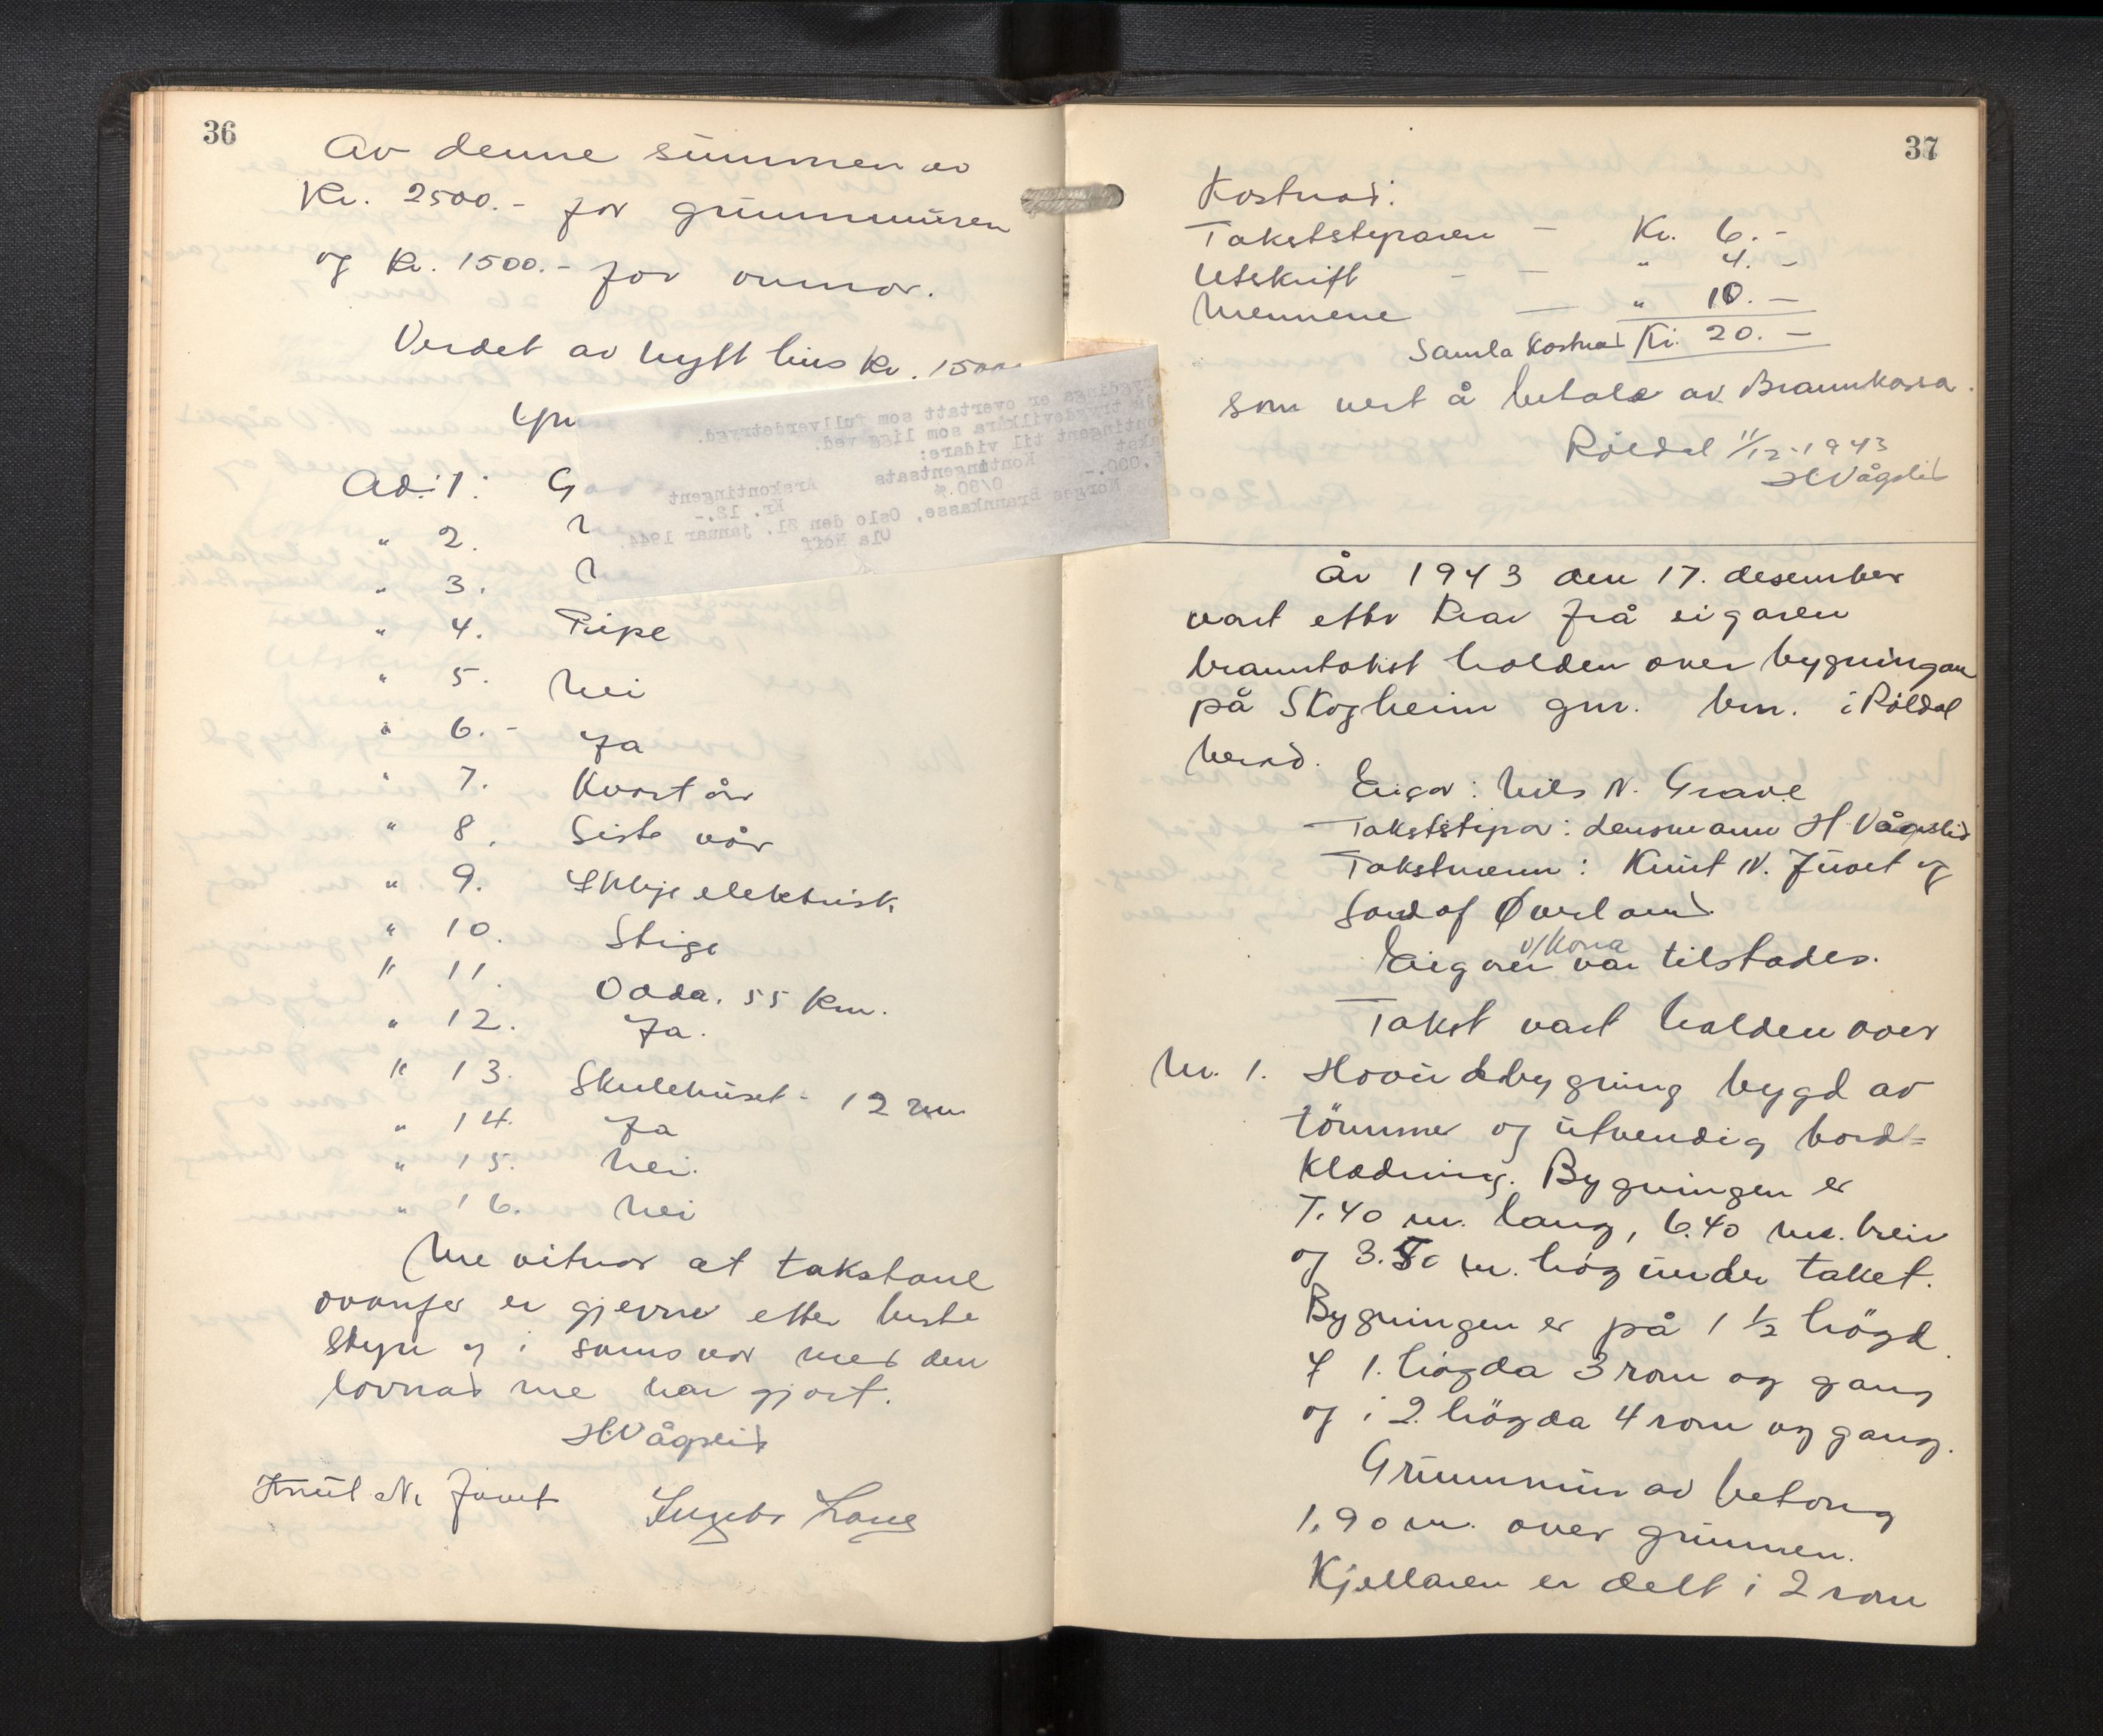 36
Av denne summen av
Kr. 2500.- for grunnmuren
og Kr. 1500.- for omnar.
Verdet av nytt hus Kr. 1500
Spu
bygdinga er overtatt som fullverdetrygd.
trygdevilkåra som ligg ved.
kontingent til vidare:
Kontingentsats
Årskontingent
.000.-
0/80.%
Kr. 12.-
Norges Brannkasse, Oslo den 21. januar 1944.
Ola Hoff
Ad: 1: G
" 2. N
" 3. N
" 4. Pipe
" 5. Nei
" 6. - Ja
" 7. Kvart år
" 8. Siste vår
" 9. Ikkje elektrisk
" 10. Stige
" 11. Odda. 55 Km.
" 12. Ja.
" 13. Skulehuset - 12 m
" 14. Ja
" 15. Nei.
" 16. Nei
Me vitnar at takstane
ovanfor er gjevne etter beste
skyn og i samsvar med den
lovnad me har gjort.
H Vågslid
Knut N. Juvet
37
Kostnad:
Takststyraren - Kr. 6.-
Utskrift - - " 4.-
Mennene - " 10.-
Samla Kostnad Kr. 20.-
som vert å betale av Brannkassa.
Röldal 11/12-1943
H Vågslid
År 1943 den 17. desember
vart etter krav frå eigaren
branntakst halden over bygningane
på Skogheim gnr. bnr. i Röldal
herad.
Eigar: Nils N. Grave
Takststyrar: lensmann H Vågslid
Takstmenn: Knut N. Juvet og
Sandof Øverland.
v/kona
Eigaren var tilstades.
Takst vart halden over
Nr. 1. Hovudbygning bygd av
tömmer og utvendig bord=
klædning. Bygningen er
7.40 m. lang, 6.40 m. brei
og 3.50 m. høg under taket.
Bygningen er på 1 1/2 högd.
I 1. högda 3 rom og gang
og i 2. högda 4 rom og gang.
Grunnmur av betong
1,90 m. over grunnen.
Kjellaren er delt i 2 rom